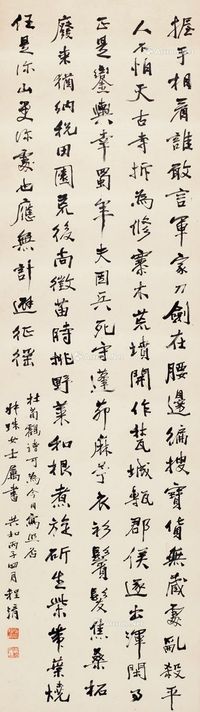 握手相看誰敢言軍家刀劍在腰邊徧搜寶貨無藏處亂殺平
人不怕天古寺拆為修寨木荒墳開作甃城甎郡侯逐出渾閒事
正是鑾輿幸蜀年夫因兵死守蓬茅麻苧衣衫鬢髮焦桑柘
廢來猶納稅田園荒後尚徵苗時挑野菜和根煮旋斫生柴帶葉燒
任是深山更深處也應無計避征徭
杜荀鶴詩可為今日寫照否
珠女士屬書 共和丙子四月程潛